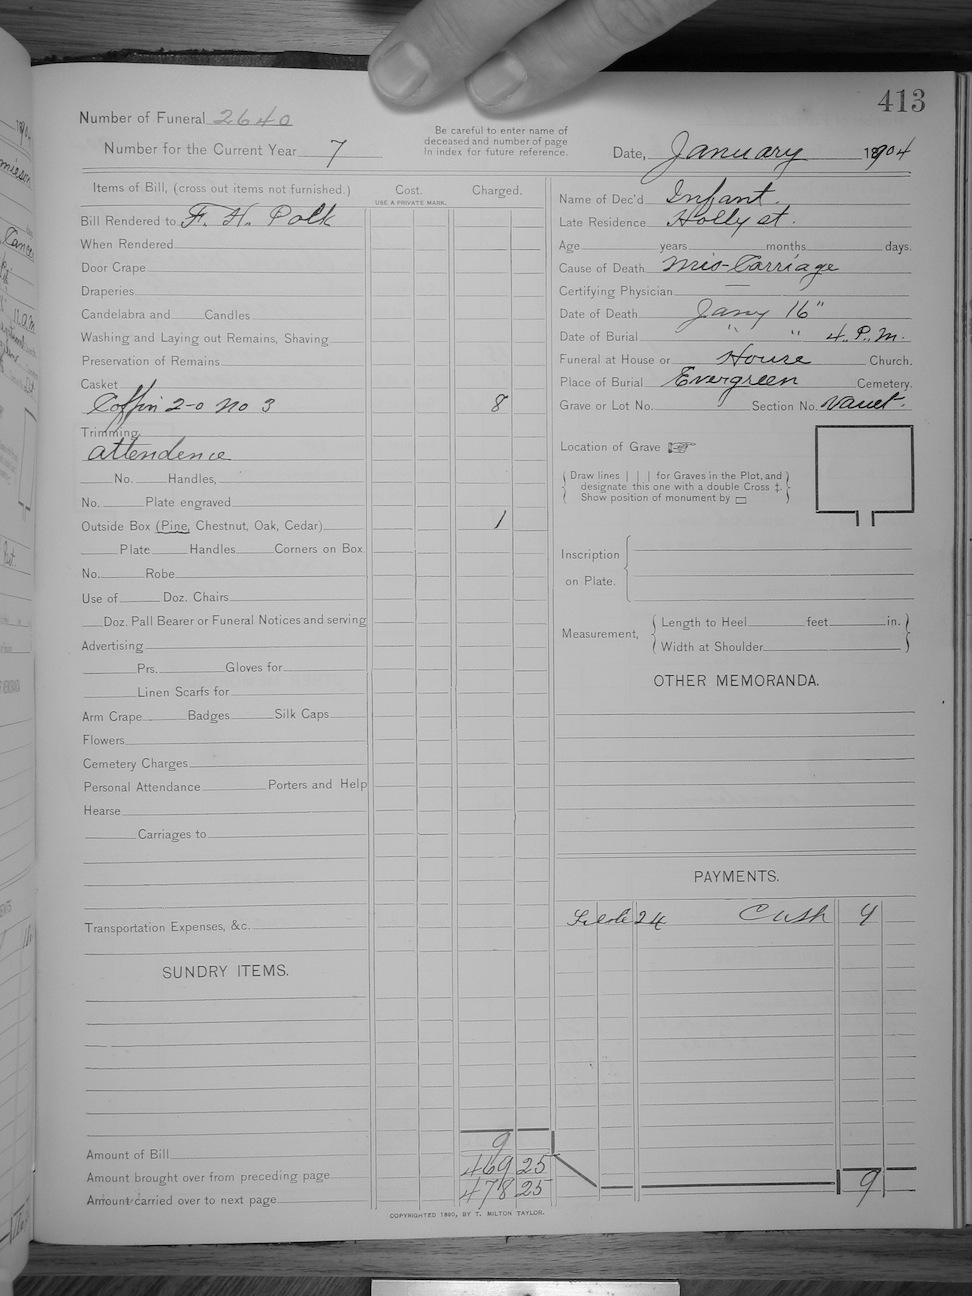 413
Number of Funeral 2640
Number for the Current Year 7
Be careful to enter name of
deceased and number of page
in index for future reference.
Date, January 1904
Items of Bill, (cross out items not furnished.) Cost. Charged.
USE A PRIVATE MARK.
Bill Rendered to F. H. Polk
When Rendered
Door Crape
Draperies
Candelabra and Candles
Washing and Laying out Remains, Shaving
Preservation of Remains
Casket
Coffin 2-0 No 3 8
Trimming
attendence
No. Handles,
No. Plate engraved
Outside Box (Pine, Chestnut, Oak, Cedar) 1
Plate Handles Corners on Box
No. Robe
Use of Doz. Chairs
Doz. Pall Bearer or Funeral Notices and serving
Advertising
Prs. Gloves for
Linen Scarfs for
Arm Crape Badges Silk Caps
Flowers
Cemetery Charges
Personal Attendance Porters and Help
Hearse
Carriages to
Transportation Expenses, &c.
SUNDRY ITEMS.
Amount of Bill 9
Amount brought over from preceding page 469 25
Amount carried over to next page 478 25
COPYRIGHTED 1890, BY T. MILTON TAYLOR.
Name of Dec'd Infant.
Late Residence Holly st.
Age years months days.
Cause of Death Mis-Carriage
Certifying Physician —
Date of Death Jany 16"
Date of Burial " " 4. P. M.
Funeral at House or House Church.
Place of Burial Evergreen Cemetery.
Grave or Lot No. Section No. Vault.
Location of Grave ☞
Draw lines | | | for Graves in the Plot, and
designate this one with a double Cross ‡.
Show position of monument by ▭
Inscription
on Plate.
Measurement, Length to Heel feet in.
Width at Shoulder
OTHER MEMORANDA.
PAYMENTS.
24 Cash 9
9